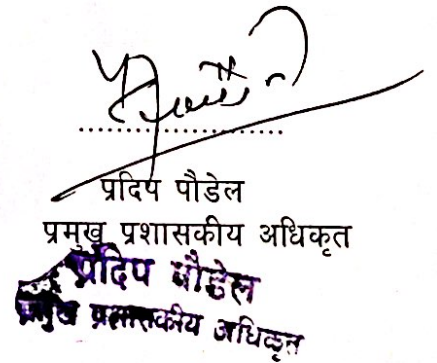 प्रदिप पौडेल
प्रमुख प्रशासकीय अधिकृत
प्रदिप पौडेल
प्रमुख प्रशासकीय अधिकृत